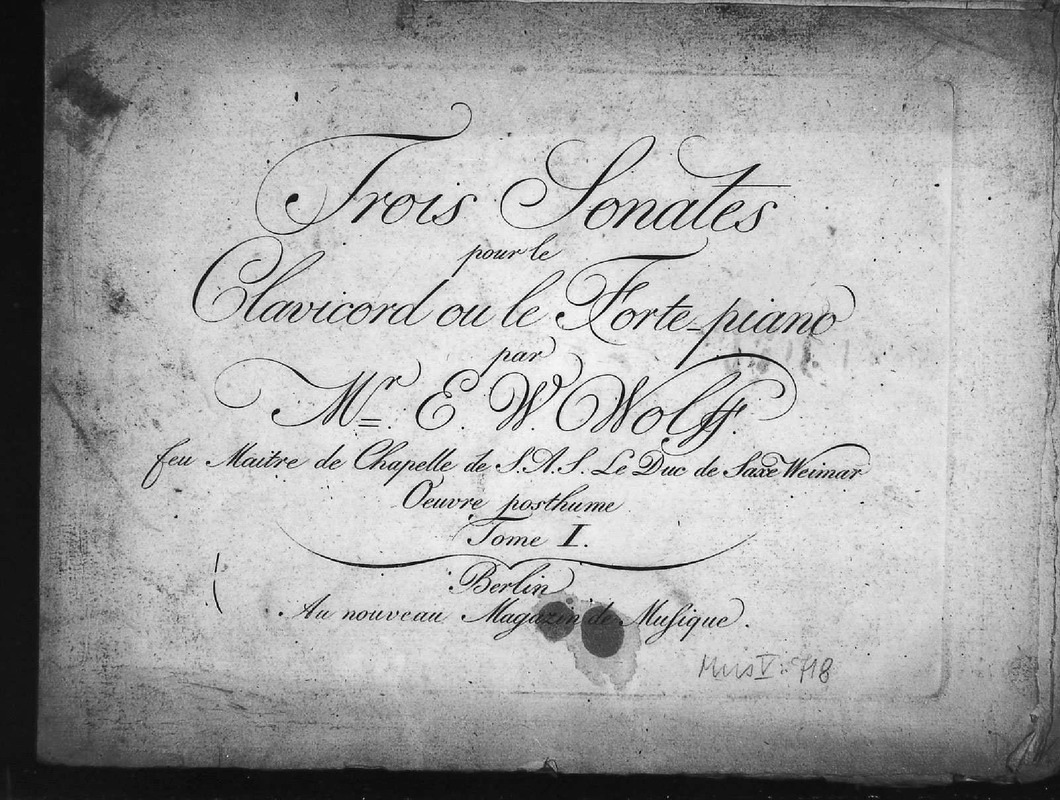 Trois Sonates
pour le
Clavicord ou le Forte-piano
par
Mr. E. W. Wolff.
feu Maitre de Chapelle de S.A.S. Le Duc de Saxe Weimar
Oeuvre posthume
Tome I.
Berlin
Au nouveau Magazin de Musique.
Mus V. 718